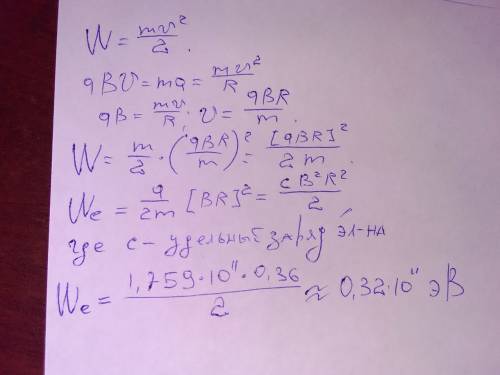 W = mv²/2.
qBV = ma = mv²/R
qB = mv/R; v = qBR/m.
W = m/2 · (qBR/m)² = [qBR]²/2m.
We = q/2m [BR]² = cB²R²/2
где c - удельный заряд эл-на
We = 1,759·10¹¹·0,36/2 ≈ 0,32·10¹¹ эВ